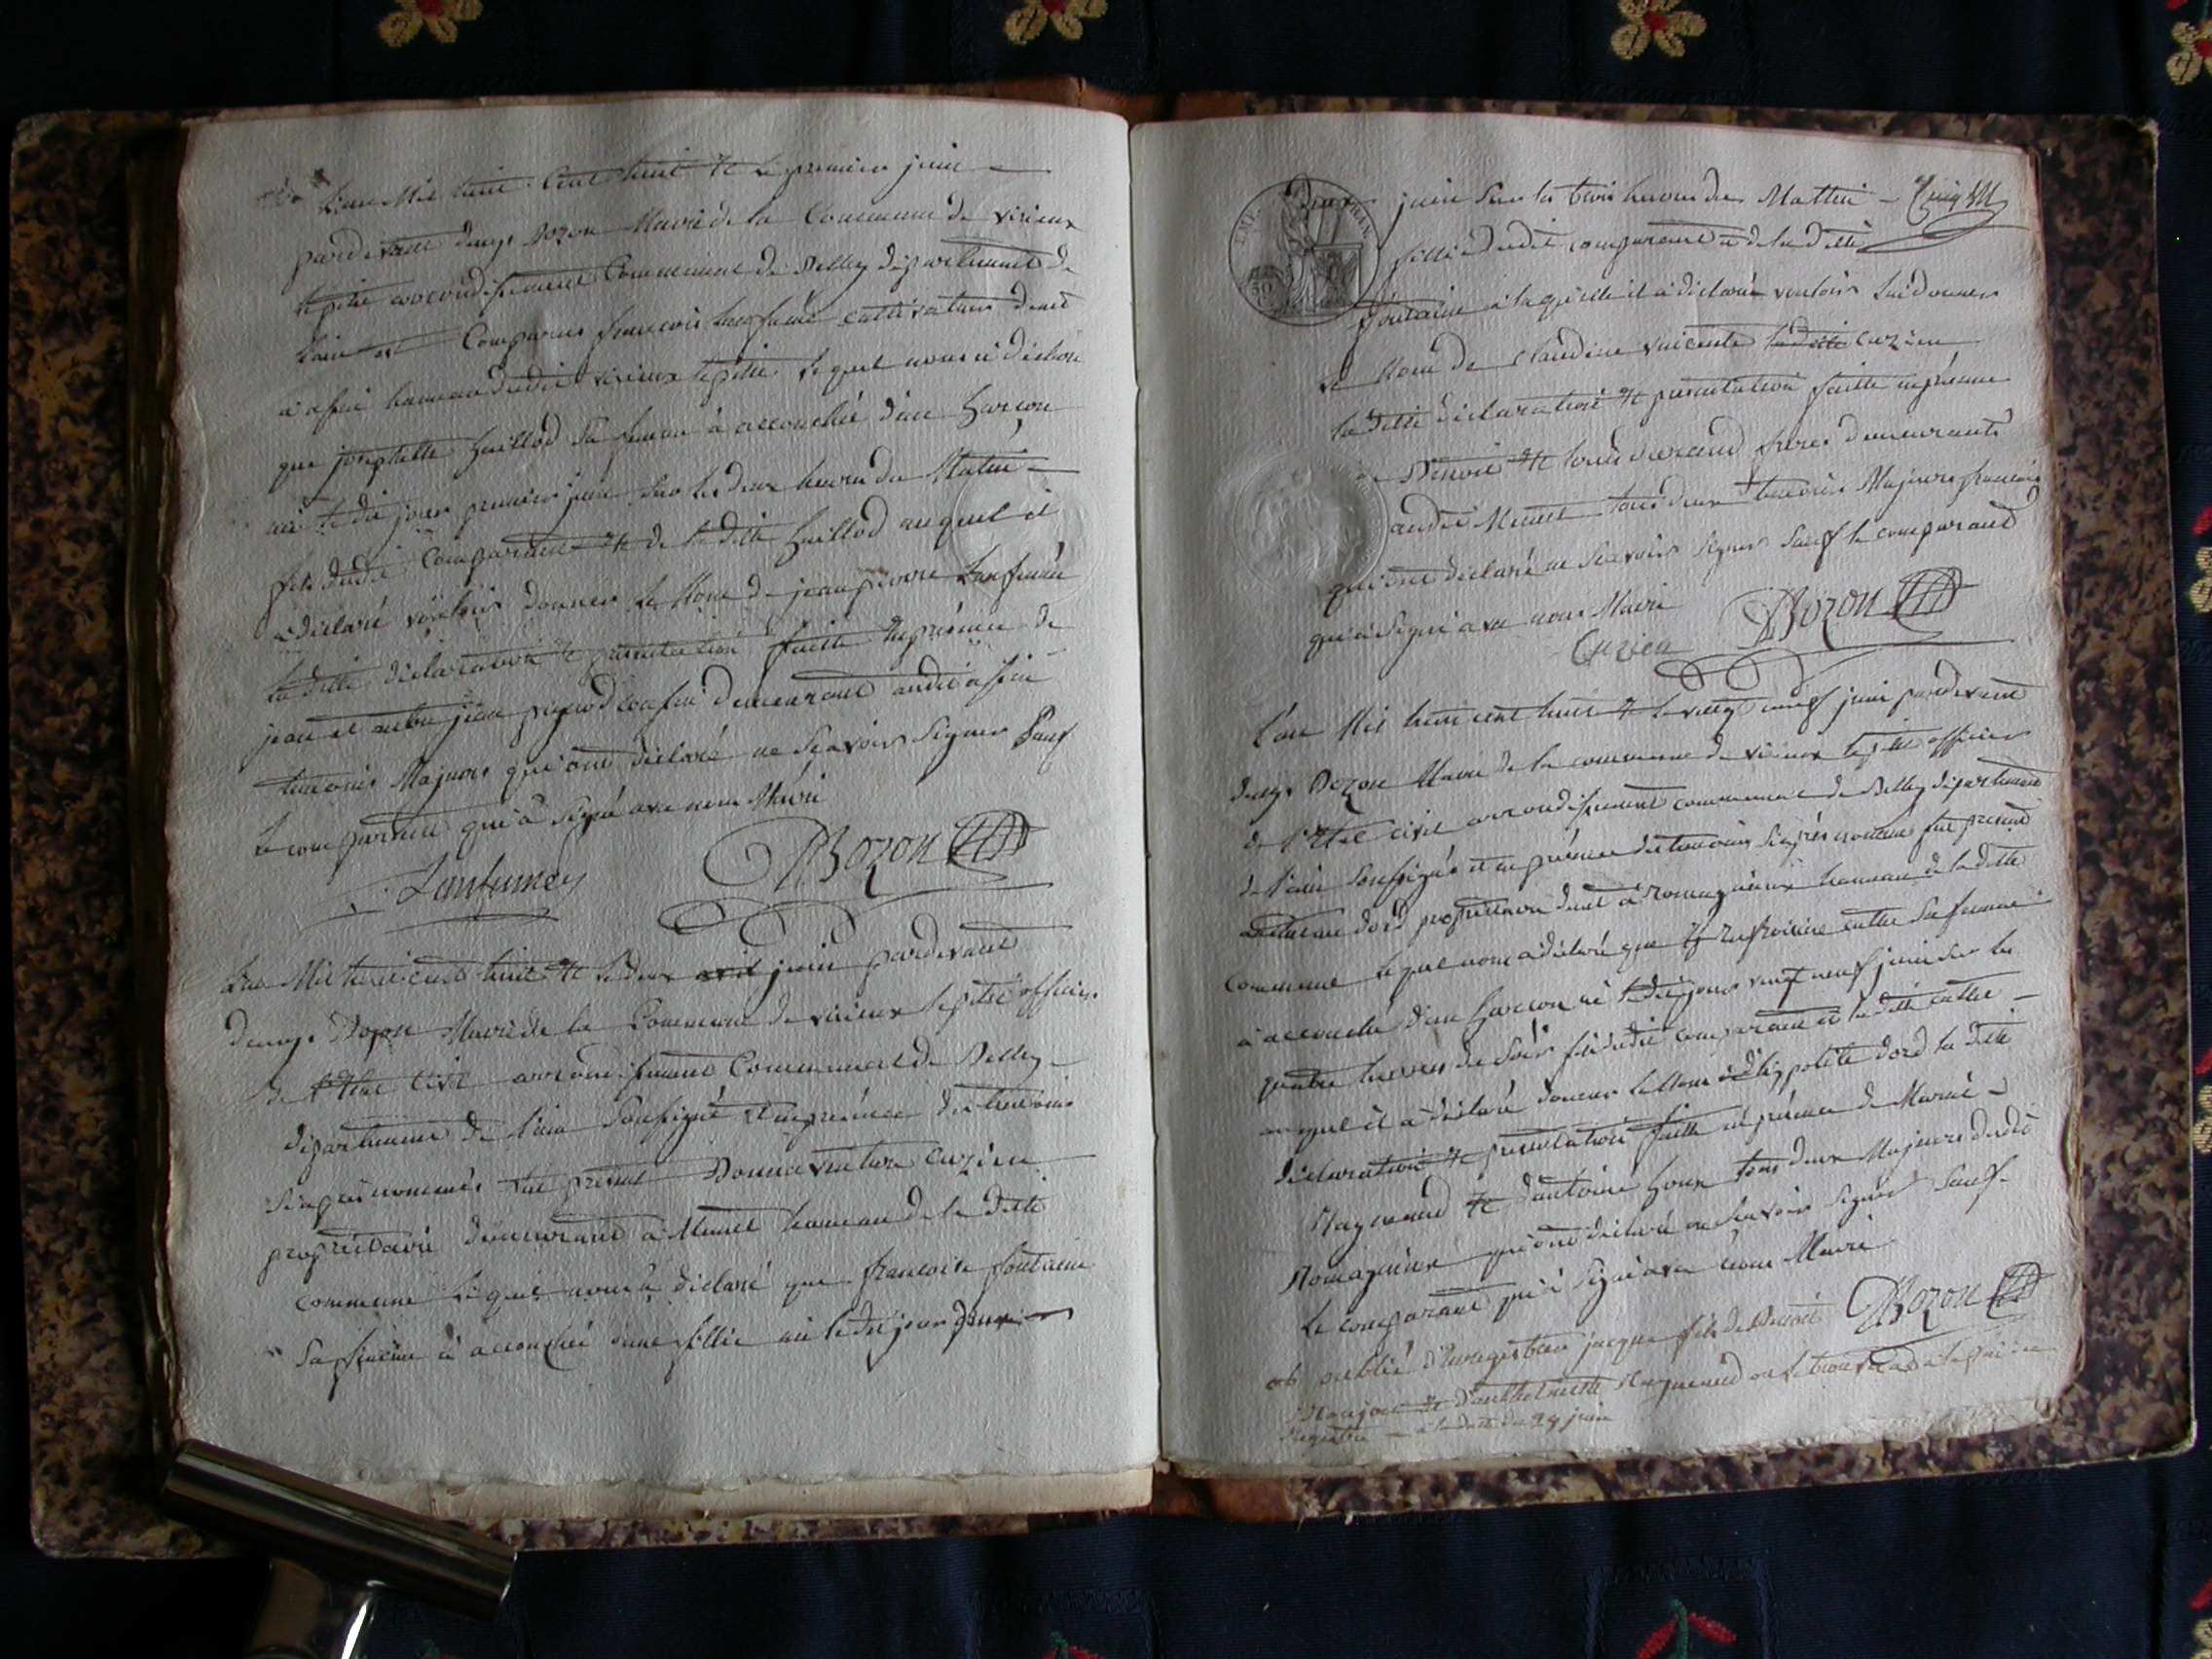 L'an Mil huit Cent huit & le premier juin
pardevant denys Bozon Maire de la Commune de virieux
le petit arrondissement Communal de Belley département de
L'ain est Comparus francois Lanfumé cultivateur demt
à assin hameau dudit virieux le petit lequel nous a déclaré
que josephette huillod sa femme à accouchée d'un Garcon
né le dit jour premier juin sur les deux heures du Matin
fils dudit Comparant & de la ditte huillod auquel il
a déclaré vouloir donner le Nom de jean pierre Lanfumée
la ditte déclaration & présentation faitte en présence de
jean et autre jean demeurant audit assin
temoins Majeurs qui ont déclaré ne Scavoir Signer Sauf
le comparant qui à Signé avec nous Maire
Lanfumey DBozon
L'an Mil huit cent huit & le deux avril juin pardevant
denys Bozon Maire de la Commune de virieux le petit officier
de l'Etat Civil arrondissement Communal de Belley
département de l'ain Soussigné et en présence des temoins
Siaprès nommés fut présent Bonnaventure Cuzien
propriétaire demeurant à Munet hameau de la ditte
commune lequel nous à déclaré que francoise fontaine
Sa femme à accouchée d'une fillie née le dit jour deux
Deux juin Sur les trois heures du Mattin
fillie dudit comparant & de la ditte
fontaine à laquelle il à déclaré vouloir lui donner
le Nom de Claudine vincente la ditte Cuzien
la ditte déclaration & présentation faitte en présence
de Benoit & Louis durand freres demeurants
audit Munet tous deux temoins Majeurs francois
qui ont déclaré ne Scavoir Signer Sauf le comparant
qui à Signé avec nous Maire
Cuzien DBozon
L'an Mil huit cent huit & le vingt neuf juin pardevant
denys Bozon Maire de la commune de virieux le petit officier
de l'Etat civil arrondissement communal de Belley département
de l'ain Soussigné et en présence des temoins Siaprès nommés fut présent
dord propriétaire demt à Romagnieux hameau de la ditte
commune lequel nous a déclaré que sa femme
à accouchée d'un Garcon né le dit jour vingt neuf juin sur les
quatre heures du Soir fils dudit comparant et la ditte
auquel il à déclaré donner le Nom d'hyppolite dord la ditte
déclaration & présentation faitte en présence de Marie
Raymand & d'antoine tous deux Majeurs dudit
Romagnieux qui ont déclaré ne Scavoir Signer Sauf
le comparant qui à Signé avec nous Maire
DBozon
oublié d'enregistrer jacque fils de Benoit
& d'anthelmette on le trouvera à la fin du
Registre à la datte du 24 juin